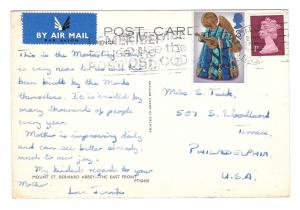 BY AIR MAIL
PAR AVION
POST CARD
1P
This is the
is very near here all
built by the Monks
themselves. It is visited by
many thousands of people
every year.
Mother is improving daily
and can see better already,
much to our joy.
My kindest regards to your
Mother.
Love
MOUNT ST. BERNARD ABBEY—THE EAST FRONT
Miss S. Tuck,
507 S. Woodland
Terrace
PHILADELPHIA.
U.S.A.